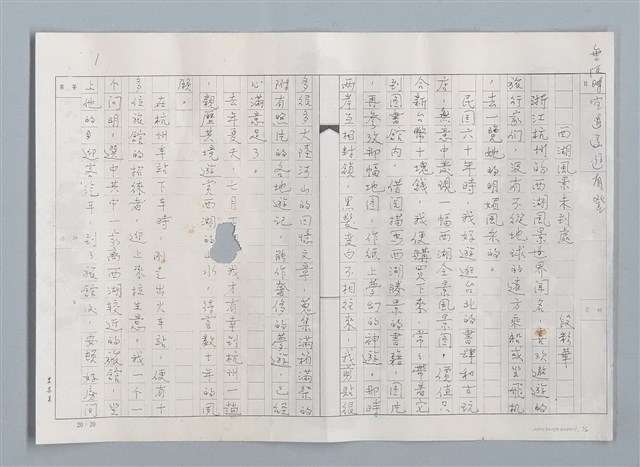 西湖風景未到處
段彩華
浙江杭州的西湖風景世界聞名,喜歡遨遊的
旅行家們,沒有不從地球的遠方乘船或坐飛機
,去一覽她的明媚風采的。
民國六十年時,我好遊逛台北的書肆和古玩
店,無意中發現一幅西湖全景風景圖,價值只
合新台幣十塊錢,我便購買下來,常常帶着它
到圖書館內,借閱描寫西湖勝景的書籍、圖片
,再參攷那幅地圖,作紙上夢幻的神遊。那時
兩岸互相封鎖,黑髮變白不相往來,我剪貼很
多很多大陸河山的回憶文章,蒐集滿箱滿架的
附有照片的各地遊記,能作奢侈的夢遊,已經
心滿意足了。
去年夏天,七月 我才有幸到杭州一趟
,親歷其境遊賞西湖的山水,償官數十年的夙
願。
在杭州車站下車時,剛走出火車站,便有十
多位旅館的招徠者,迎上來拉生意。我一個一
个问明,選中其中一家離西湖較近的旅館,坐
上他的车迎客汽车,到了旅館後,安頓好房間
20×20